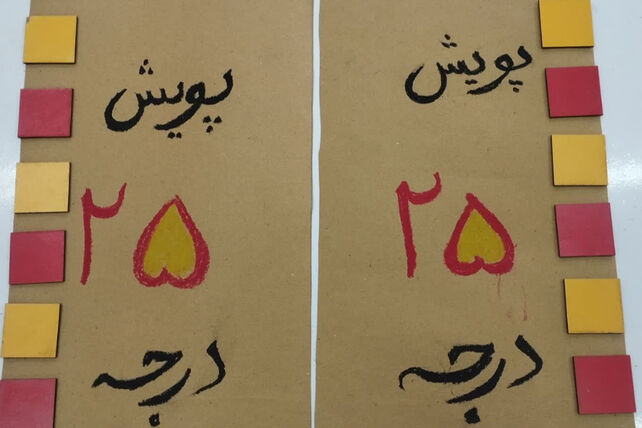 پویش
۲۵
درجه
پویش
۲۵
درجه